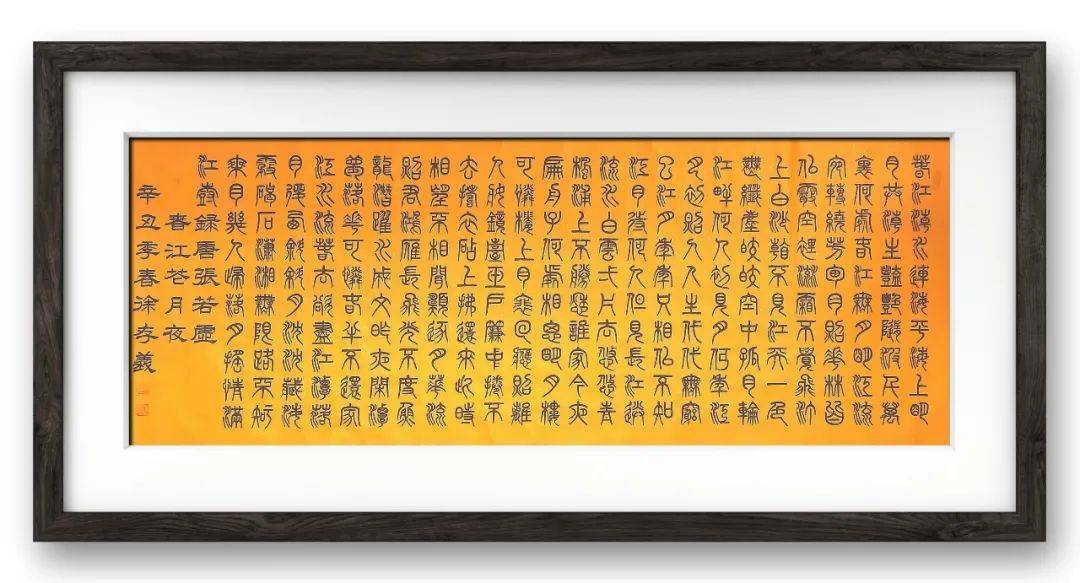 春江潮水連海平海上明
月共潮生灩灩隨波千萬
里何處春江無月明江流
宛轉繞芳甸月照花林皆
似霰空裏流霜不覺飛汀
上白沙看不見江天一色
無纖塵皎皎空中孤月輪
江畔何人初見月何年江
月初照人人生代代無窮
已江月年年只相似不知
江月待何人但見長江送
流水白雲一片去悠悠青
楓浦上不勝愁誰家今夜
扁舟子何處相思明月樓
可憐樓上月裴回應照離
人妝鏡臺玉戶簾中捲不
去擣衣砧上拂還來此時
相望不相聞願逐月華流
照君鴻雁長飛光不度魚
龍潛躍水成文昨夜閑潭
夢落花可憐春半不還家
江水流春去欲盡江潭落
月復西斜斜月沈沈藏海
霧碣石瀟湘無限路不知
乘月幾人歸落月搖情滿
江樹錄唐張若虛
春江花月夜
辛丑季春徐存義